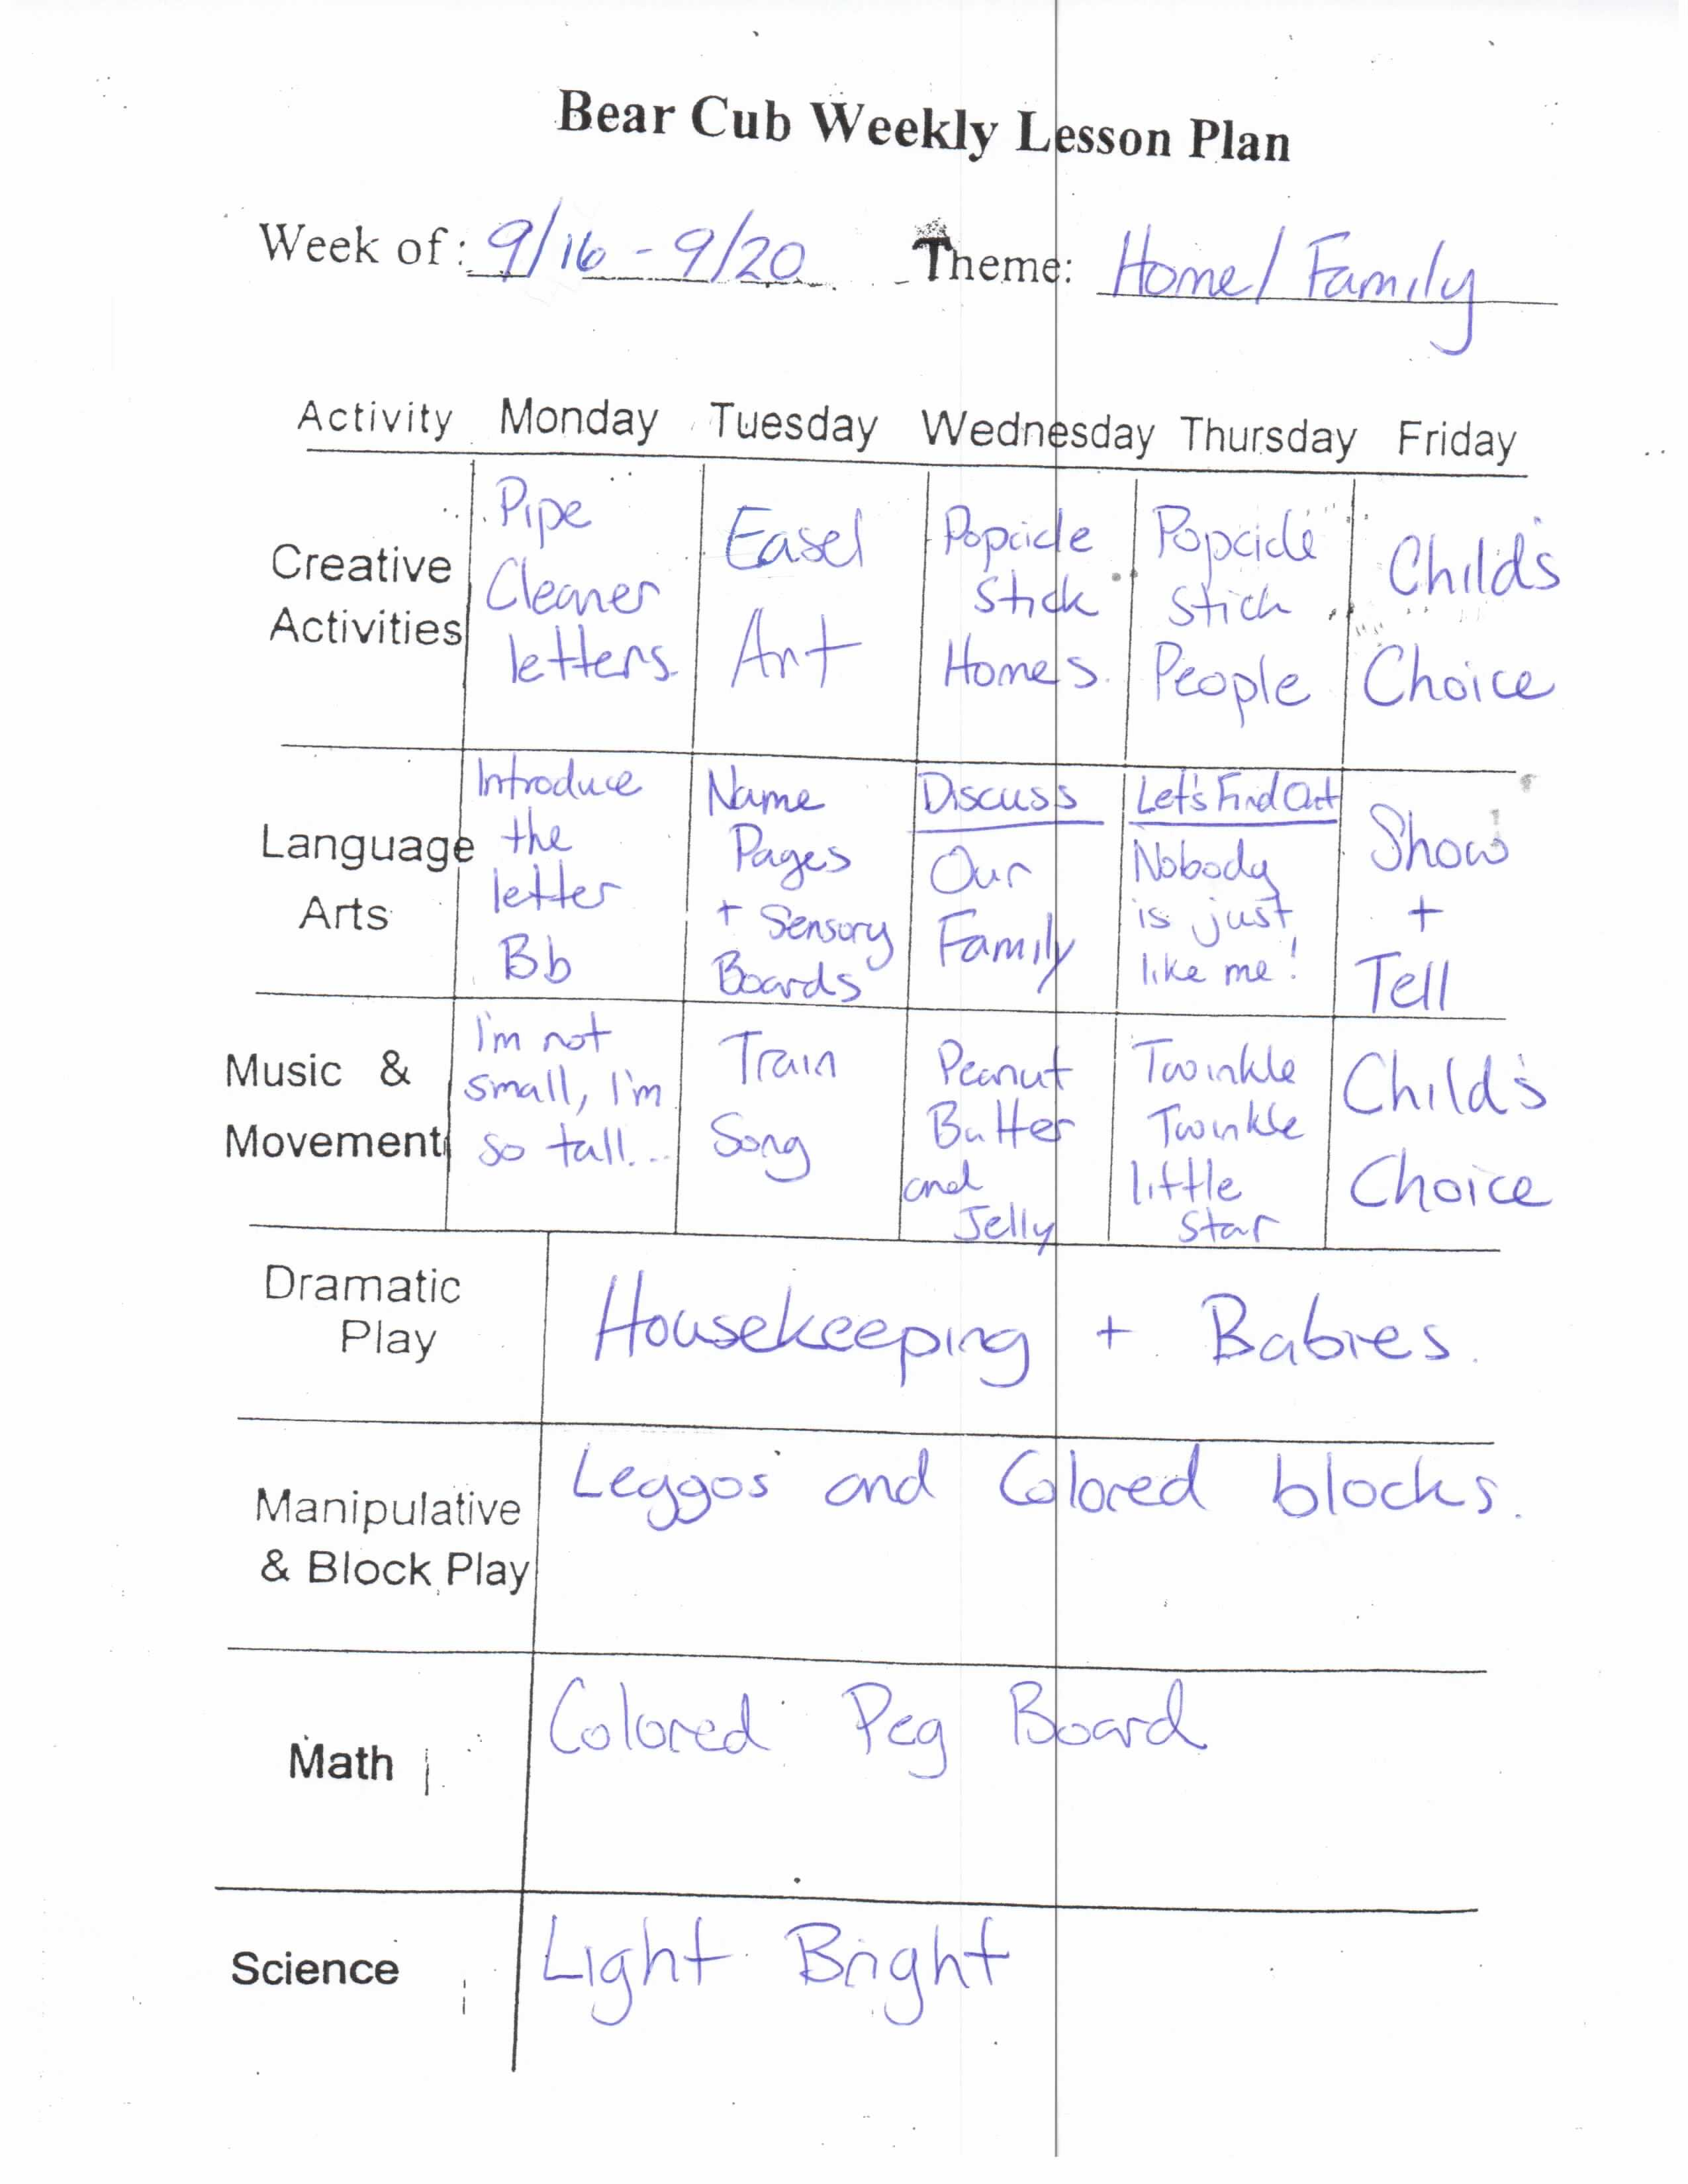 Bear Cub Weekly Lesson Plan
Week of: 9/16 - 9/20 Theme: Home/Family
Activity Monday Tuesday Wednesday Thursday Friday
Creative
Activities
Pipe
Cleaner
letters
Easel
Art
Popcicle
Stick
Homes
Popcicle
Stick
People
Child's
Choice
Language
Arts
Introduce
the
letter
Bb
Name
Pages
+ Sensory
Boards
Discuss
Our
Family
Let's Find Out
Nobody
is just
like me!
Show
+
Tell
Music &
Movement
I'm not
small, I'm
so tall...
Train
Song
Peanut
Butter
and
Jelly
Twinkle
Twinkle
little
Star
Child's
Choice
Dramatic
Play
Housekeeping + Babies.
Manipulative
& Block Play
Leggos and Colored blocks.
Math
Colored Peg Board
Science
Light Bright